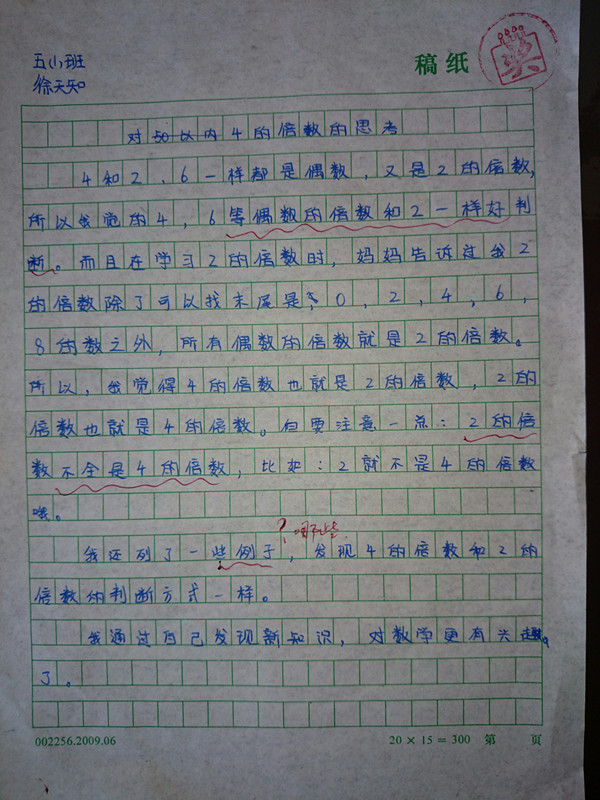 五小班
徐天知
稿纸
奖
对50以内4的倍数的思考
4和2、6一样都是偶数，又是2的倍数，
所以我觉的4，6等偶数的倍数和2一样好判
断。而且在学习2的倍数时，妈妈告诉过我2
的倍数除了可以找末尾是0，2，4，6，
8的数之外，所有偶数的倍数就是2的倍数。
所以，我觉得4的倍数也就是2的倍数，2的
倍数也就是4的倍数。但要注意一点：2的倍
数不全是4的倍数，比如：2就不是4的倍数
哦。
？哪些
我还列了一些例子，发现4的倍数和2的
倍数的判断方式一样。
我通过自己发现新知识，对数学更有兴趣
了。
002256.2009.06
20×15=300 第 页